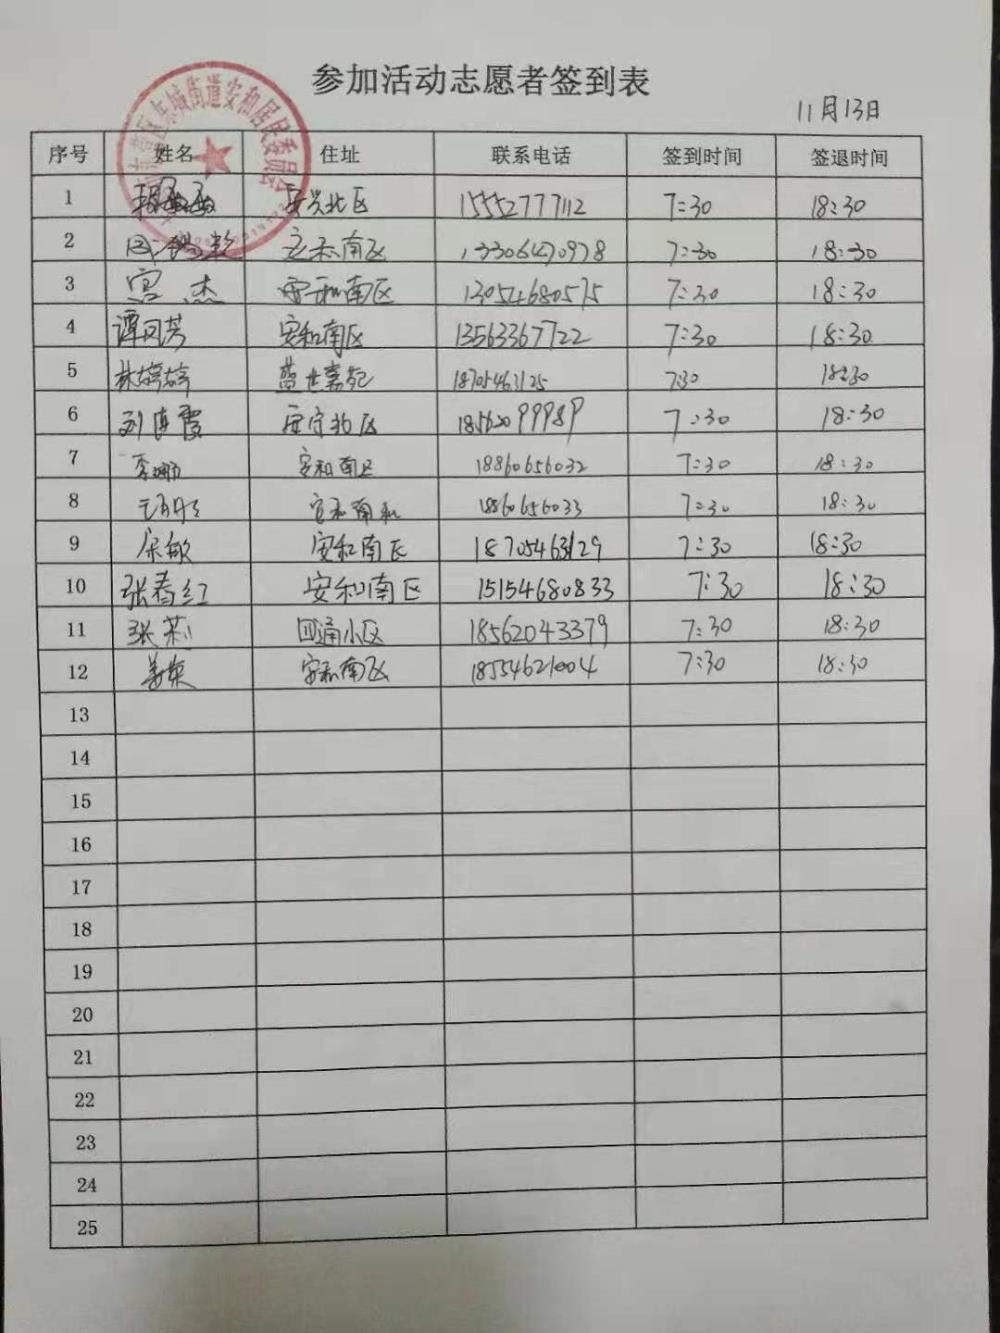 参加活动志愿者签到表
11月13日
序号 姓名 住址 联系电话 签到时间 签退时间
1 安兴北区 15552777112 7:30 18:30
2 安和南区 13306470978 7:30 18:30
3 宫杰 安和南区 13054680575 7:30 18:30
4 谭凤芳 安和南区 13563367722 7:30 18:30
5 林婷婷 蓝世嘉苑 18705463125 7:30 18:30
6 安宁北区 18562099989 7:30 18:30
7 李娜 安和南区 18860656032 7:30 18:30
8 安和南区 18860656033 7:30 18:30
9 宋敏 安和南区 18705463129 7:30 18:30
10 张春红 安和南区 15154680833 7:30 18:30
11 张莉 四通小区 18562043379 7:30 18:30
12 姜荣 安和南区 18554621004 7:30 18:30
13
14
15
16
17
18
19
20
21
22
23
24
25